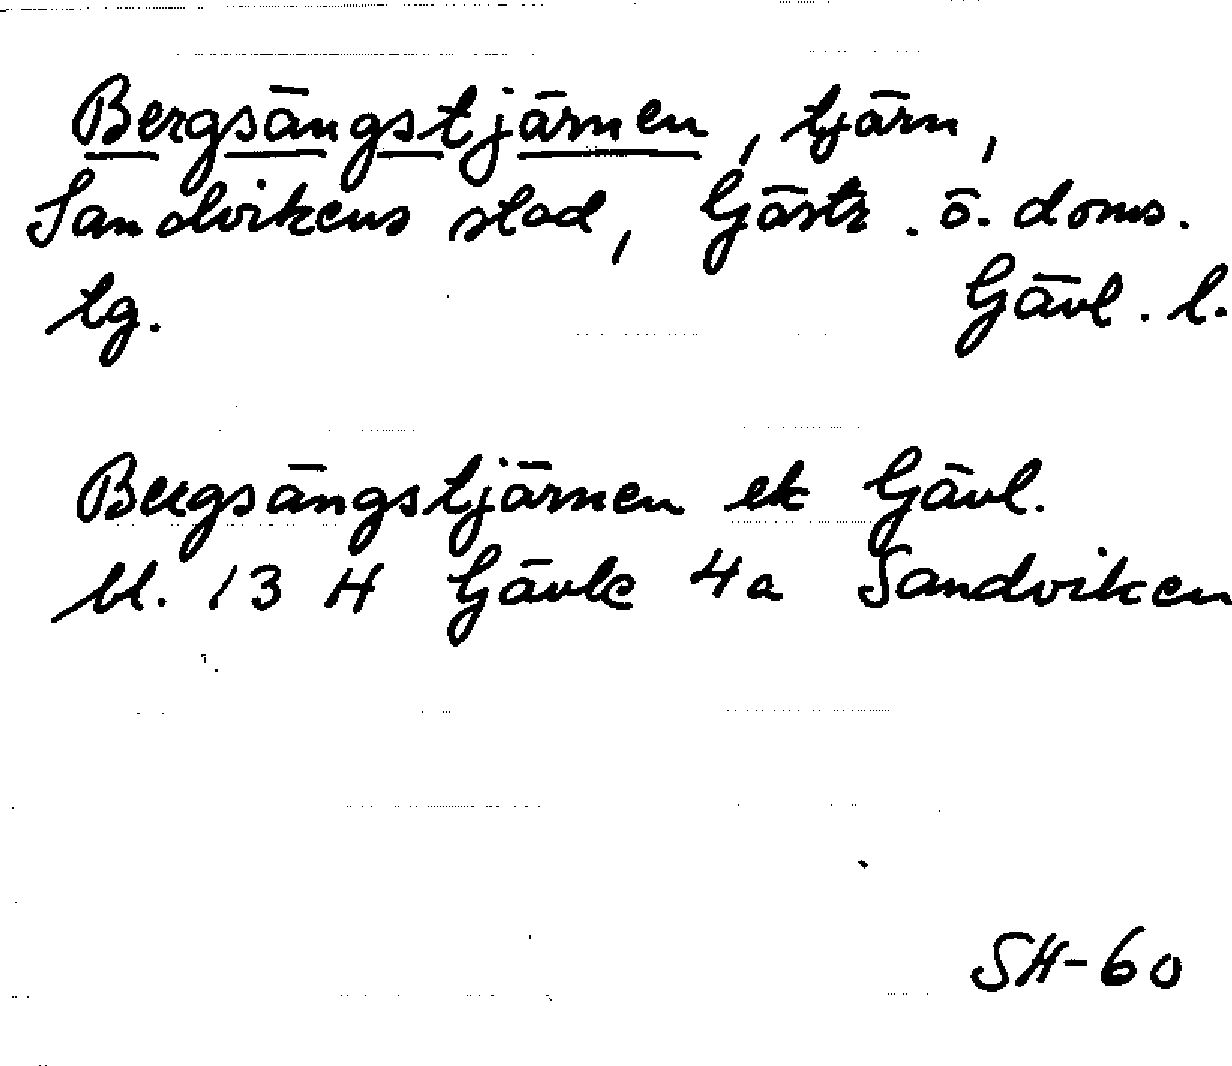 Bergsängstjärnen, tjärn,
Sandvikens stad, Gästr. ö. doms.
tg. Gävl. l.
Bergsängstjärnen ek Gävl.
bl. 13 H Gävle 4a Sandviken
SH-60